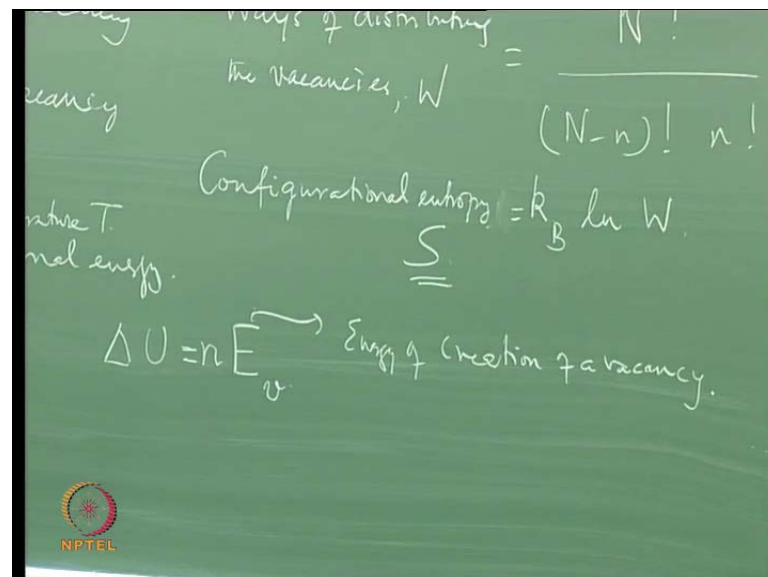 Ways of distributing
the vacancies, W = N! / (N-n)! n!
Configurational entropy = k_B ln W.
S
T.
energy.
ΔU = n E_v → Energy of Creation of a vacancy.
NPTEL